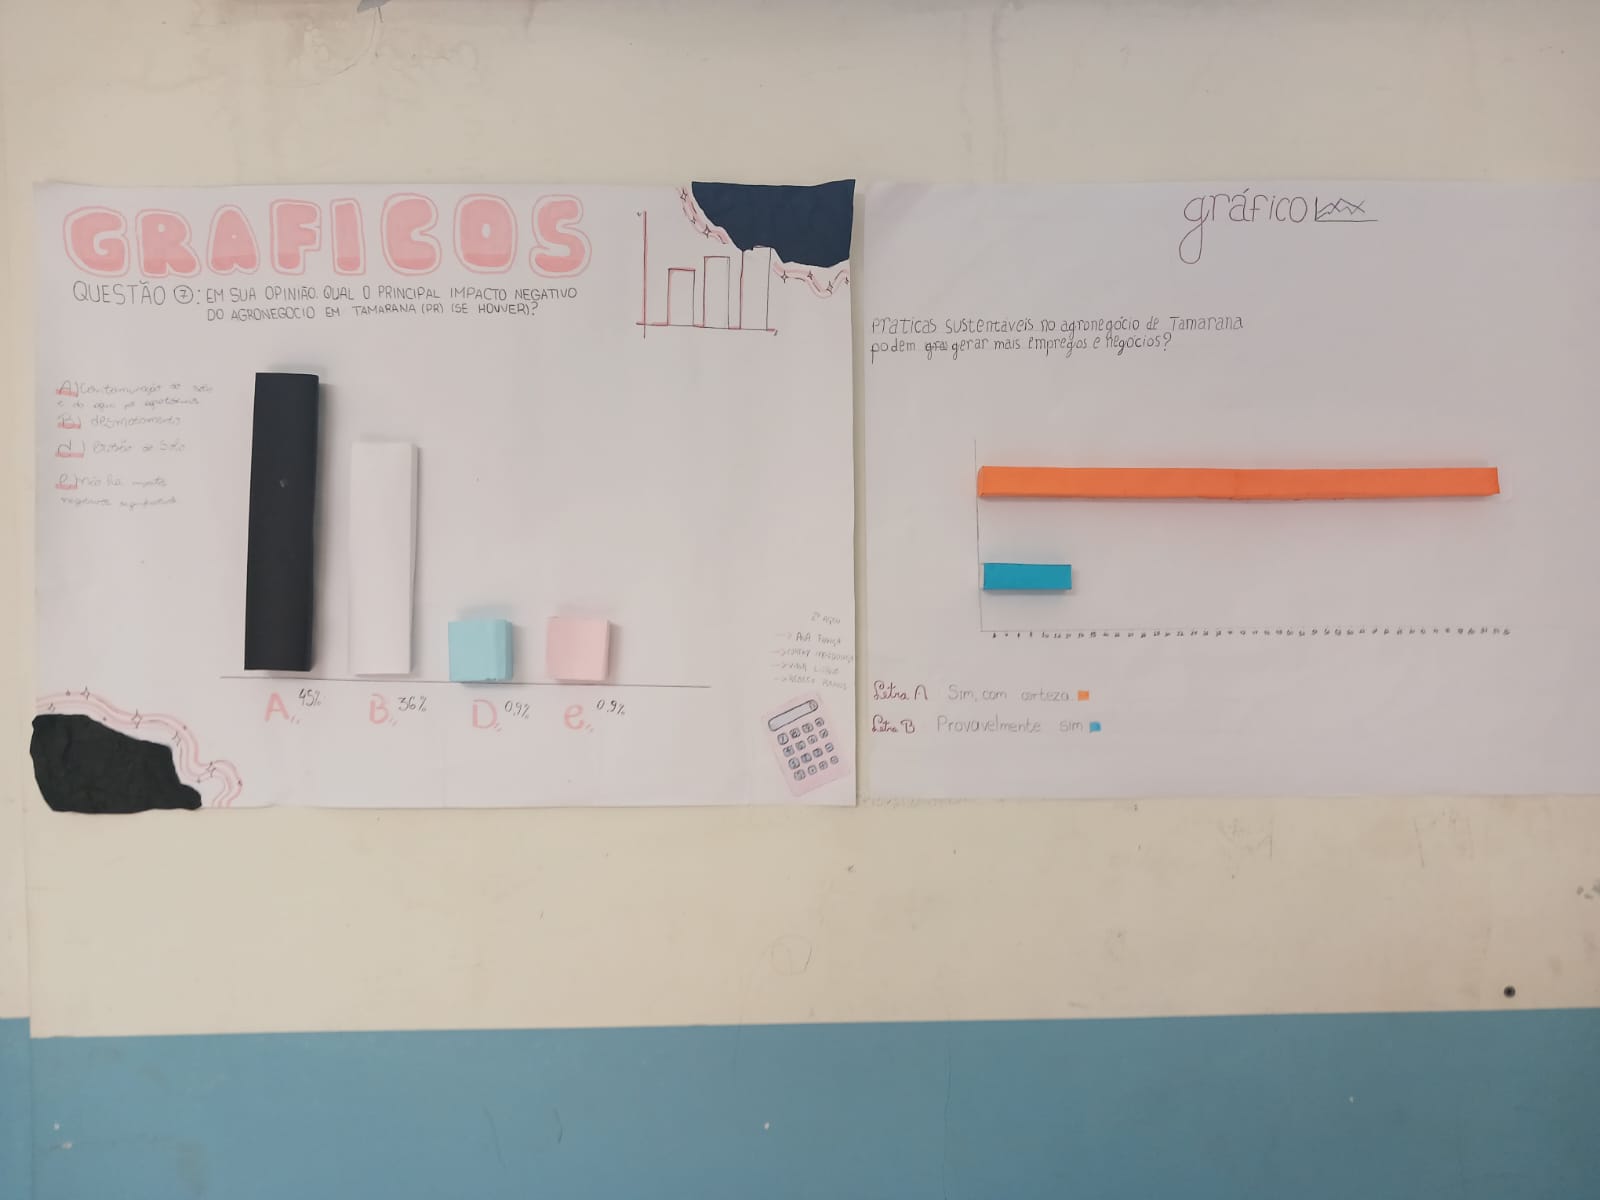 GRAFICOS
QUESTÃO 7: EM SUA OPINIÃO. QUAL O PRINCIPAL IMPACTO NEGATIVO
DO AGRONEGOCIO EM TAMARANA (PR) (SE HOUVER)?
A) Contaminação do solo
e da água por agrotóxicos
B) desmatamento
d) Erosão do solo
E) não ha impactos
negativos
A 45%
B 36%
D 0,9%
e 0,9%
2º
ANA
gráfico
Praticas sustentáveis no agronegócio de Tamarana
podem gerar mais empregos e negócios?
Letra A Sim, com certeza
Letra B Provavelmente sim